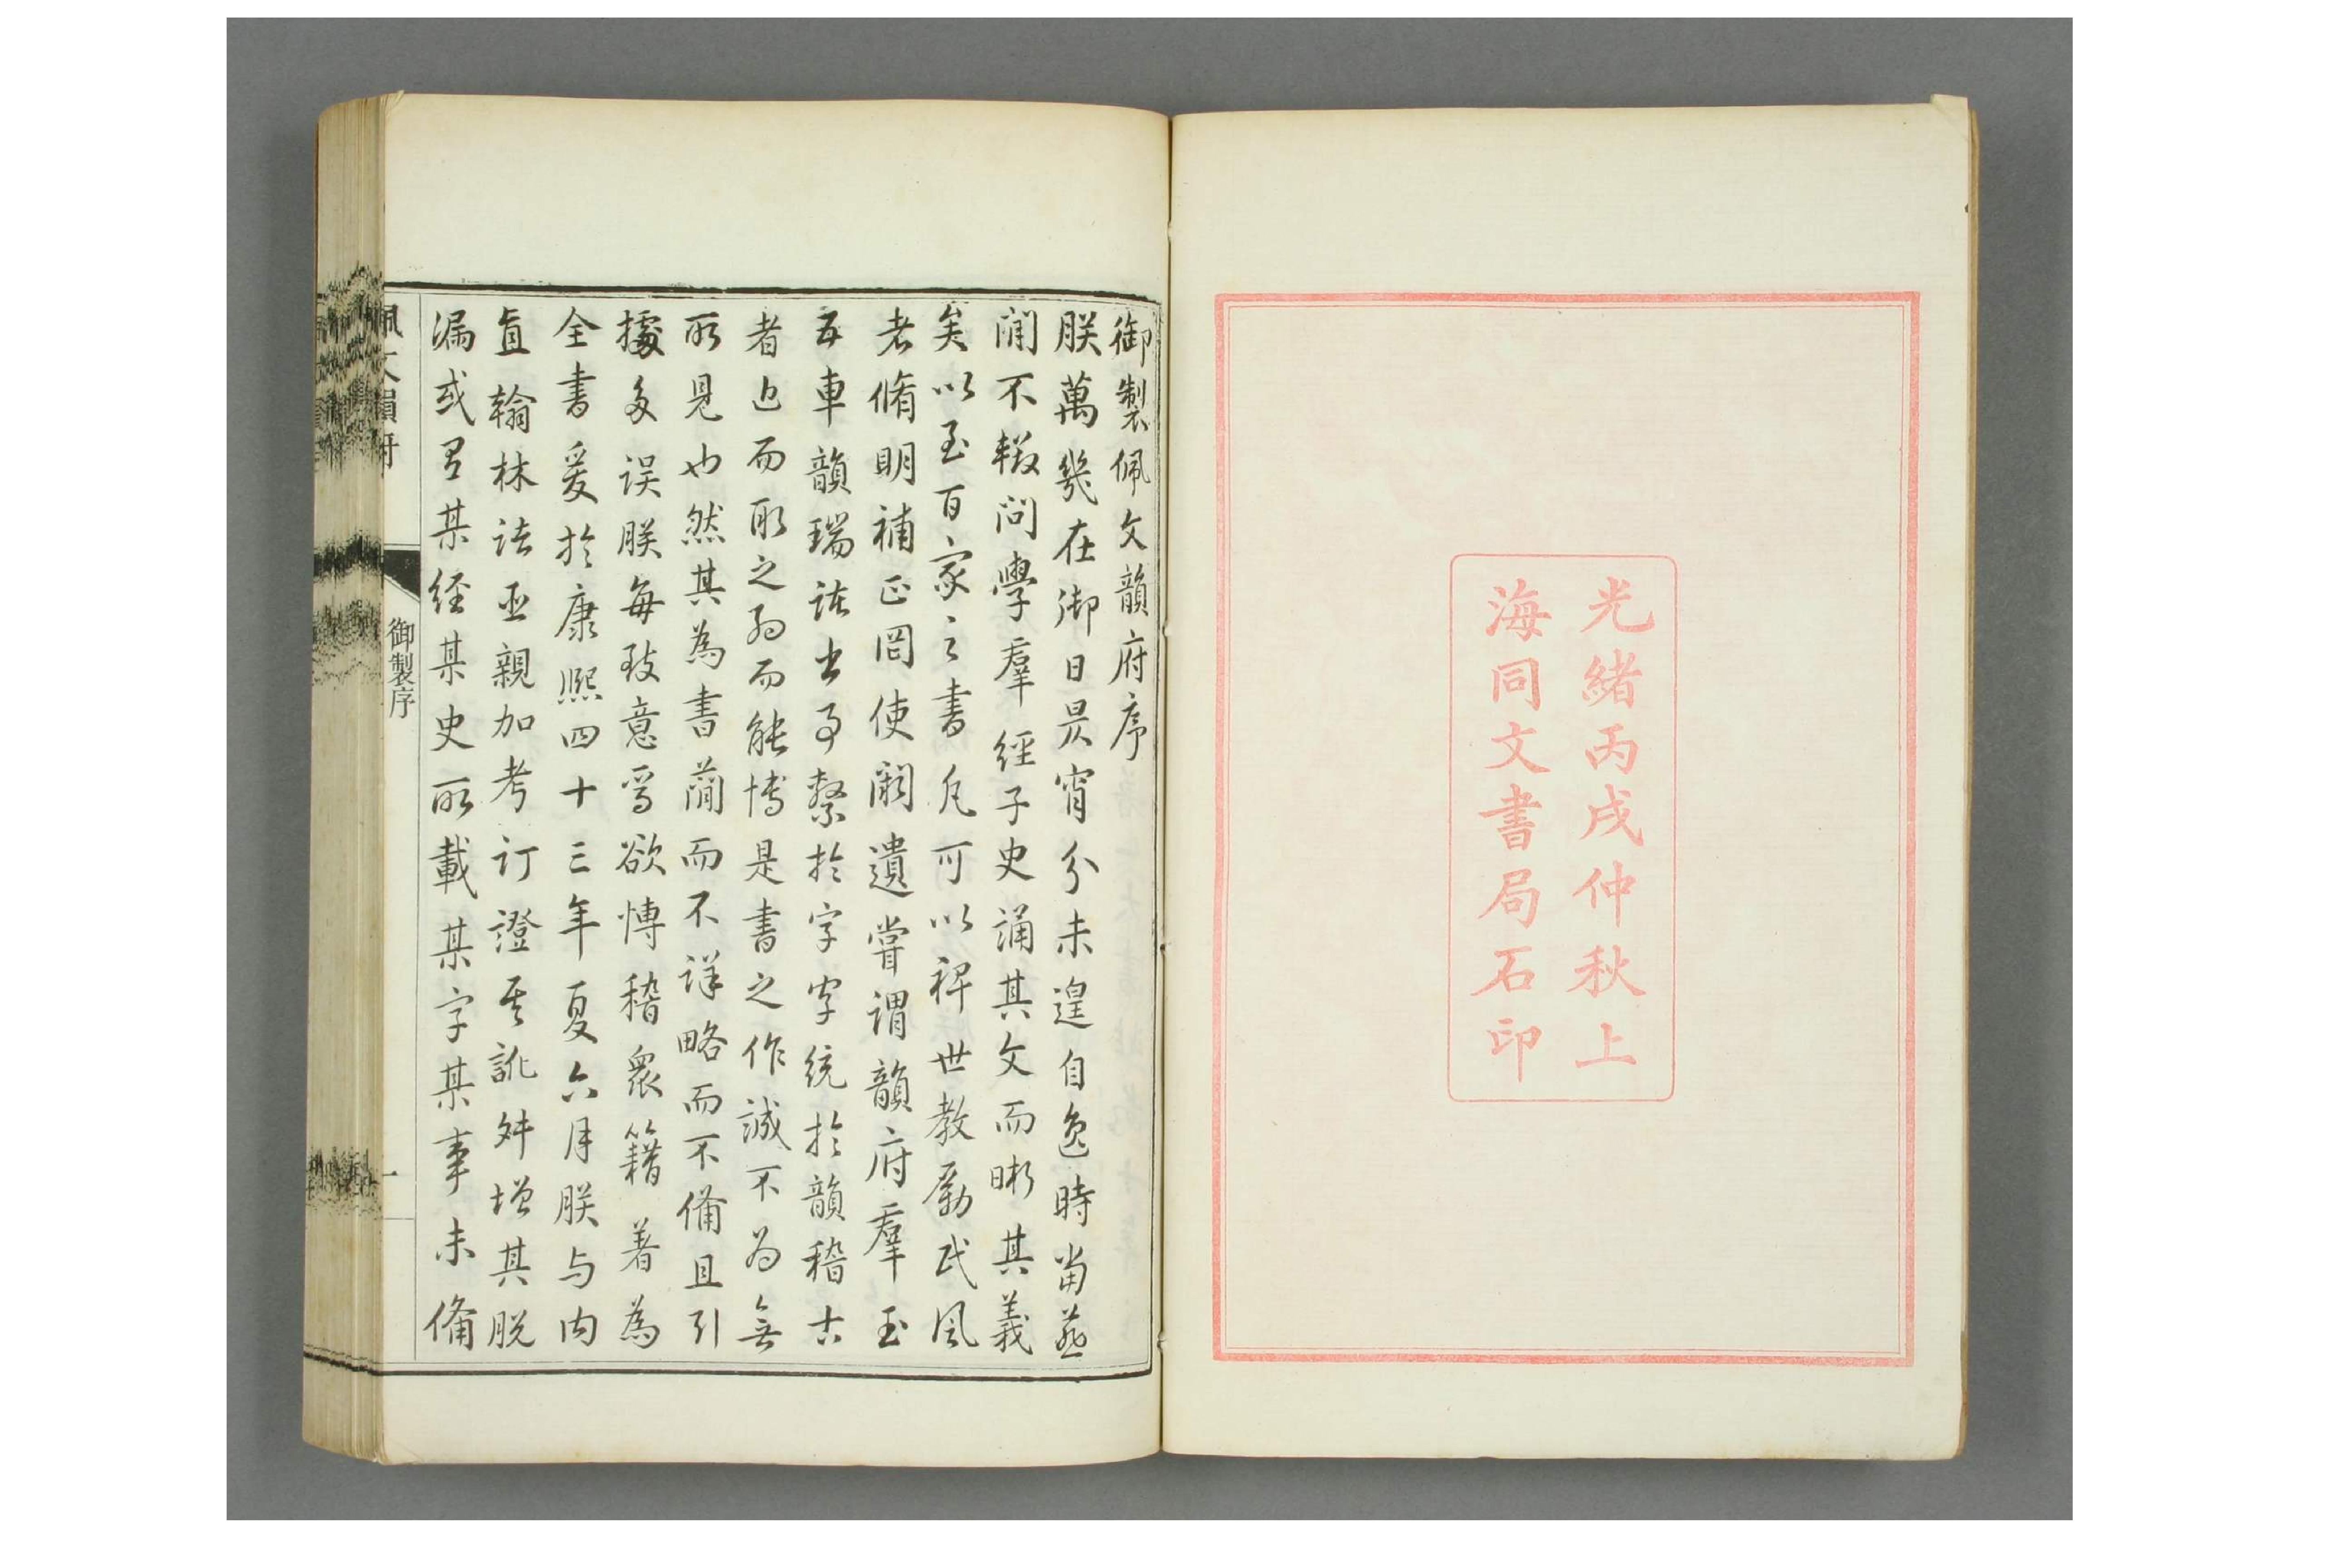 光緒丙戌仲秋上
海同文書局石印
御製佩文韻府序
朕萬幾在御日昃宵分未遑自逸時當燕
閒不輟問學羣經子史誦其文而晰其義
矣以至百家之書凡可以裨世教勵民風
者脩明補正罔使闕遺嘗謂韻府羣玉
五車韻瑞諸書事繫於字字統於韻稽古
者近而取之約而能博是書之作誠不為無
所見也然其為書簡而不詳略而不備且引
據多误朕每致意焉欲博稽眾籍著為
全書爰於康熙四十三年夏六月朕与内
直翰林諸臣親加考订證其訛舛增其脱
漏或有某经某史所載某字某事未備
佩文韻府
御製序
一